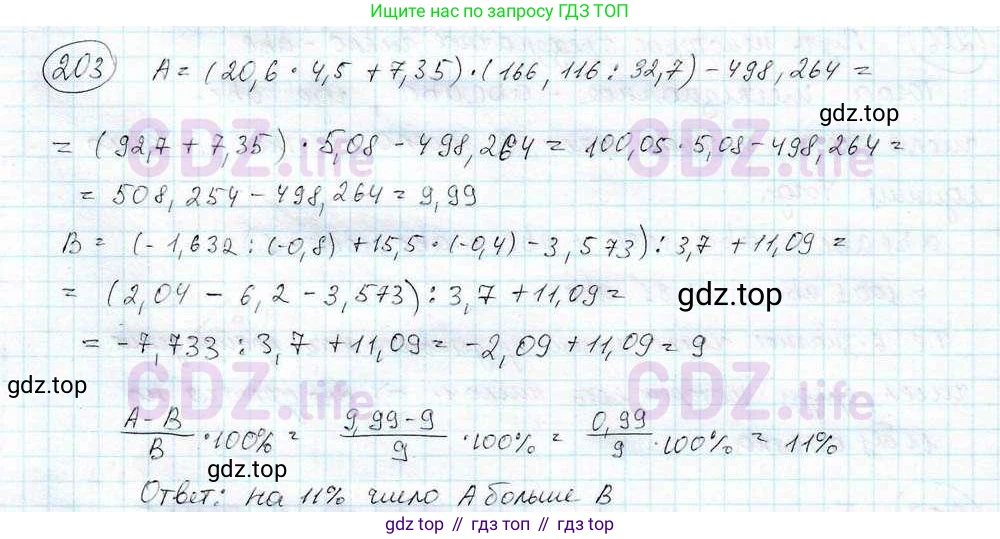 Ищите ответ по запросу ГДЗ ТОП
203 A = (20,6 · 4,5 + 7,35) · (166,116 : 32,7) - 498,264 =
gdz.top
= (92,7 + 7,35) · 5,08 - 498,264 = 100,05 · 5,08 - 498,264 =
= 508,254 - 498,264 = 9,99
B = (-1,632 : (-0,8) + 15,5 · (-0,4) - 3,573) : 3,7 + 11,09 =
= (2,04 - 6,2 - 3,573) : 3,7 + 11,09 =
gdz.top
= -7,733 : 3,7 + 11,09 = -2,09 + 11,09 = 9
gdz.top
A-B/B · 100% = 9,99-9/9 · 100% = 0,99/9 · 100% = 11%
gdz.top
Ответ: на 11% число A больше B
GDZ.life
GDZ.life
GDZ.life
GDZ.life
gdz.top // гдз.топ // гдз.top